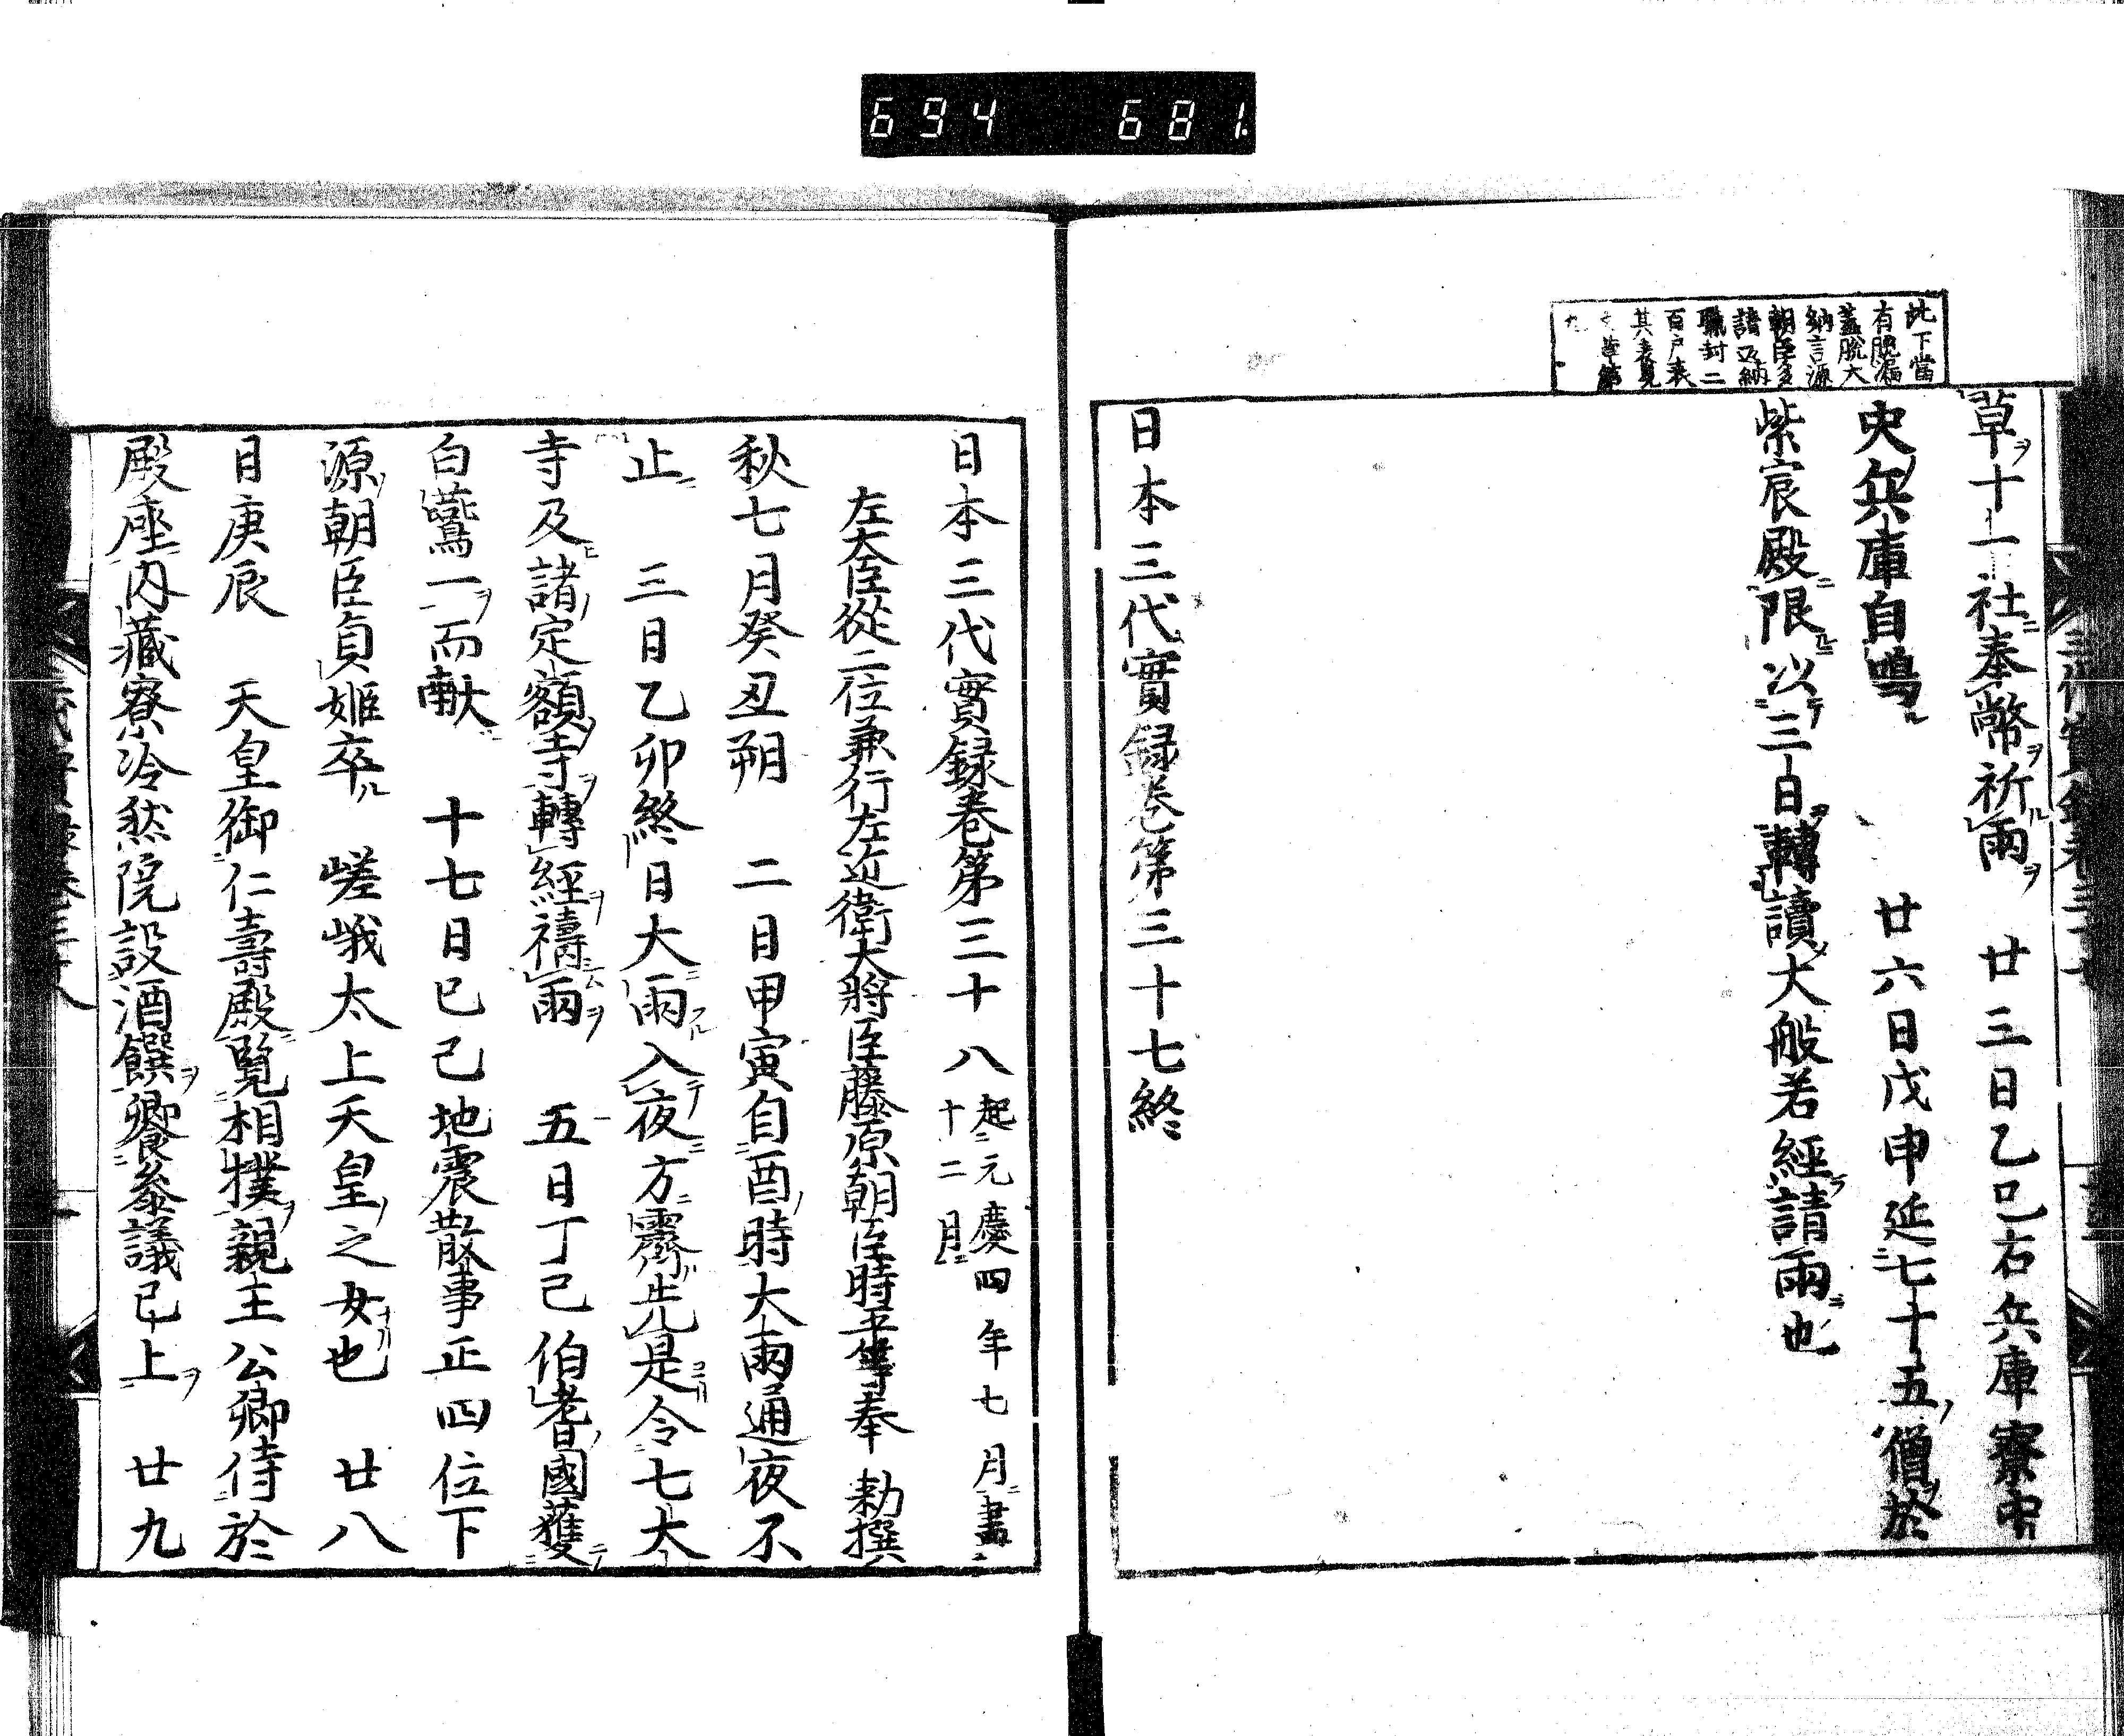 694 681.
此下當
有脱漏
蓋脱大
納言源
朝臣多
請返納
職封二
百戸表
其表見
草ヲ十一社ニ奉幣ヲ祈ル雨ヲ 廿三日乙巳右兵庫寮中
央兵庫自鳴ル 廿六日戊申延七十五ノ僧ヲ於
紫宸殿ニ限ルニ以テ三日ヲ轉讀メ大般若經ヲ請雨ニ也
日本三代實録卷第三十七終
日本三代實録卷第三十八 起元慶四年七月盡十二月
左大臣從二位兼行左近衛大將臣藤原朝臣時平等奉 勅撰
秋七月癸丑朔 二日甲寅自酉ノ時大雨通夜不
止ニ 三日乙卯終日大ニ雨フル入テ夜ニ方ニ霽先是コレ令七大
寺及ヒ諸ノ定額寺ヲ轉經ヲ禱ム雨ヲ 五日丁巳伯耆ノ國獲
白鷰一ヲ而獻 十七日己巳地震散事正四位下
源ノ朝臣貞姬卒ル 嵯峨太上天皇ノ之女也 廿八
日庚辰 天皇御仁壽殿ニ覽相撲ヲ親王公卿侍於
殿座ニ内藏寮冷然院設酒饌ヲ饗參議已上ヲ 廿九